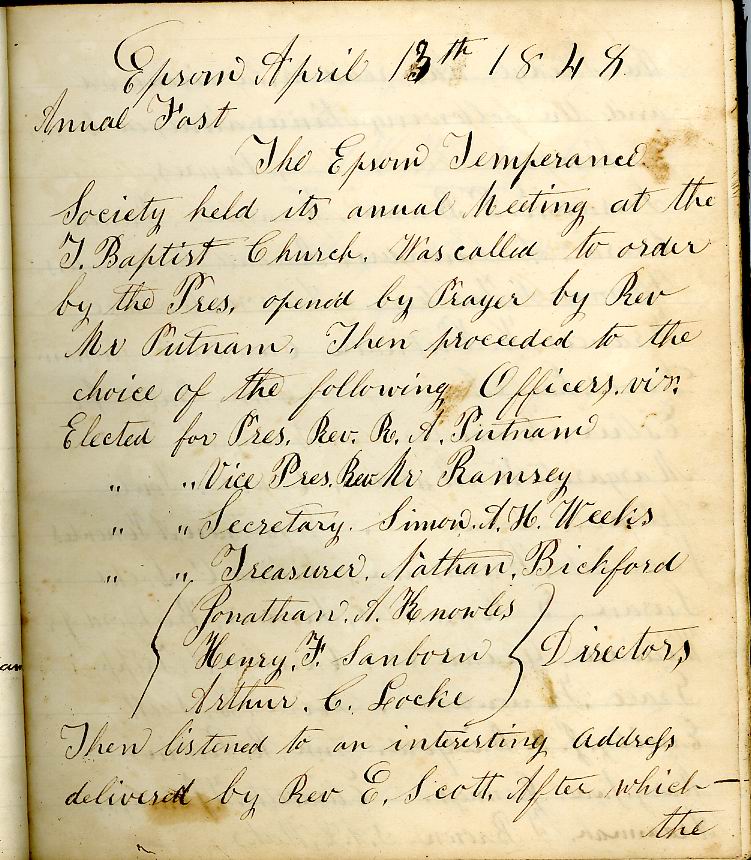 Epsom April 13th 1848
Annual Fast
The Epsom Temperance
Society held its annual Meeting at the
F. Baptist Church. Was called to order
by the Pres. opend by Prayer by Rev
Mr Putnam. Then proceeded to the
choice of the following Officers. viz.
Elected for Pres. Rev. R. A. Putnam
" " Vice Pres. Rev. Mr Ramsey
" " Secretary. Simon. A. H. Weeks
" " Treasurer. Nathan. Bickford
Jonathan. A. Knowles
Henry. F. Sanborn } Directors
Arthur. C. Locke
Then listened to an interesting address
delivered by Rev E. Scott. After which—
the